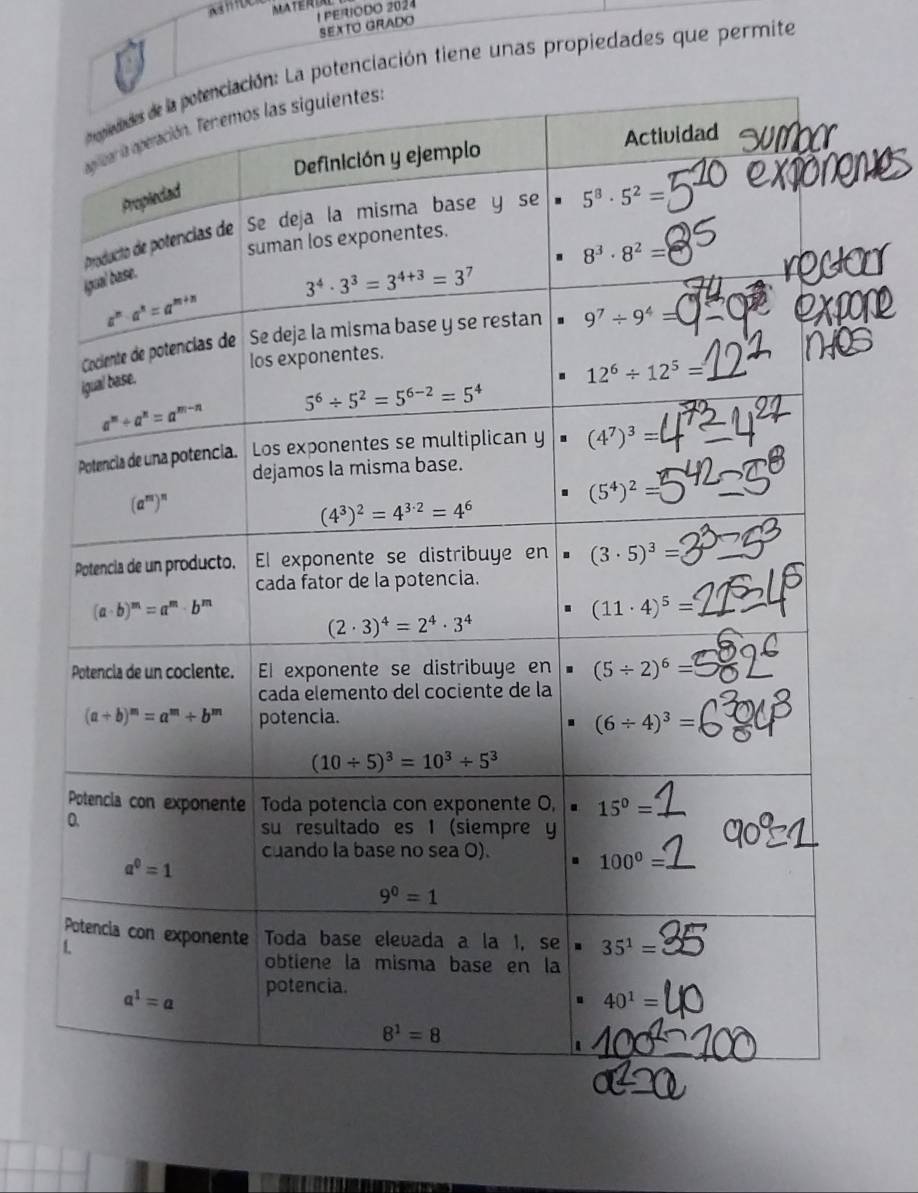 I PERIODO 2024
SEXTO GRADO
Propiedades de la potenciación: La potenciación tiene unas propiedades que permite
agilizar la operación. Tenemos las siguientes:
Propiedad
Definición y ejemplo
Actividad
sumar
exponenes
Producto de potencias de
igual base.
aᵐ · aⁿ = aᵐ⁺ⁿ
Se deja la misma base y se
suman los exponentes.
3⁴ · 3³ = 3⁴⁺³ = 3⁷
▪ 5⁸ · 5² = 5¹⁰
▪ 8³ · 8² = 8⁵
Cociente de potencias de
igual base.
aᵐ ÷ aⁿ = aᵐ⁻ⁿ
Se deja la misma base y se restan
los exponentes.
5⁶ ÷ 5² = 5⁶⁻² = 5⁴
▪ 9⁷ ÷ 9⁴ =
▪ 12⁶ ÷ 12⁵ = 12¹
expone
ntes
Potencia de una potencia.
(aᵐ)ⁿ
Los exponentes se multiplican y
dejamos la misma base.
(4³)² = 4³·² = 4⁶
▪ (4⁷)³ = 4⁷³ = 4²¹
▪ (5⁴)² = 5⁴² = 5⁸
Potencia de un producto.
(a · b)ᵐ = aᵐ · bᵐ
El exponente se distribuye en
cada fator de la potencia.
(2 · 3)⁴ = 2⁴ · 3⁴
▪ (3 · 5)³ = 3³ = 5³
▪ (11 · 4)⁵ = 11⁵ = 4⁵
Potencia de un cociente.
(a ÷ b)ᵐ = aᵐ ÷ bᵐ
El exponente se distribuye en
cada elemento del cociente de la
potencia.
(10 ÷ 5)³ = 10³ ÷ 5³
▪ (5 ÷ 2)⁶ = 5⁶ ÷ 2⁶
▪ (6 ÷ 4)³ = 6³ ÷ 4³
Potencia con exponente
0.
a⁰ = 1
Toda potencia con exponente 0,
su resultado es 1 (siempre y
cuando la base no sea 0).
9⁰ = 1
▪ 15⁰ = 1
▪ 100⁰ = 1
90⁰ = 1
Potencia con exponente
1.
a¹ = a
Toda base elevada a la 1, se
obtiene la misma base en la
potencia.
8¹ = 8
▪ 35¹ = 35
▪ 40¹ = 40
▪ 100¹ = 100
a¹ = a